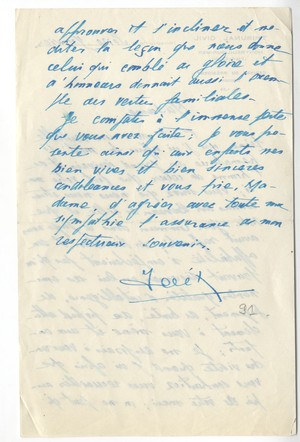 affronter et s'incliner et
méditer la leçon que nous donne
celui qui comblé de gloire et
d'honneurs donnait aussi l'exem
ple des vertus familiales.
Je compatis à l'immense perte
que vous avez faite ; je vous pré
sente ainsi qu'aux enfants mes
bien vives et bien sincères
condoléances et vous prie, Ma-
dame, d'agréer avec toute ma
sympathie l'assurance de mon
respectueux souvenir.
91